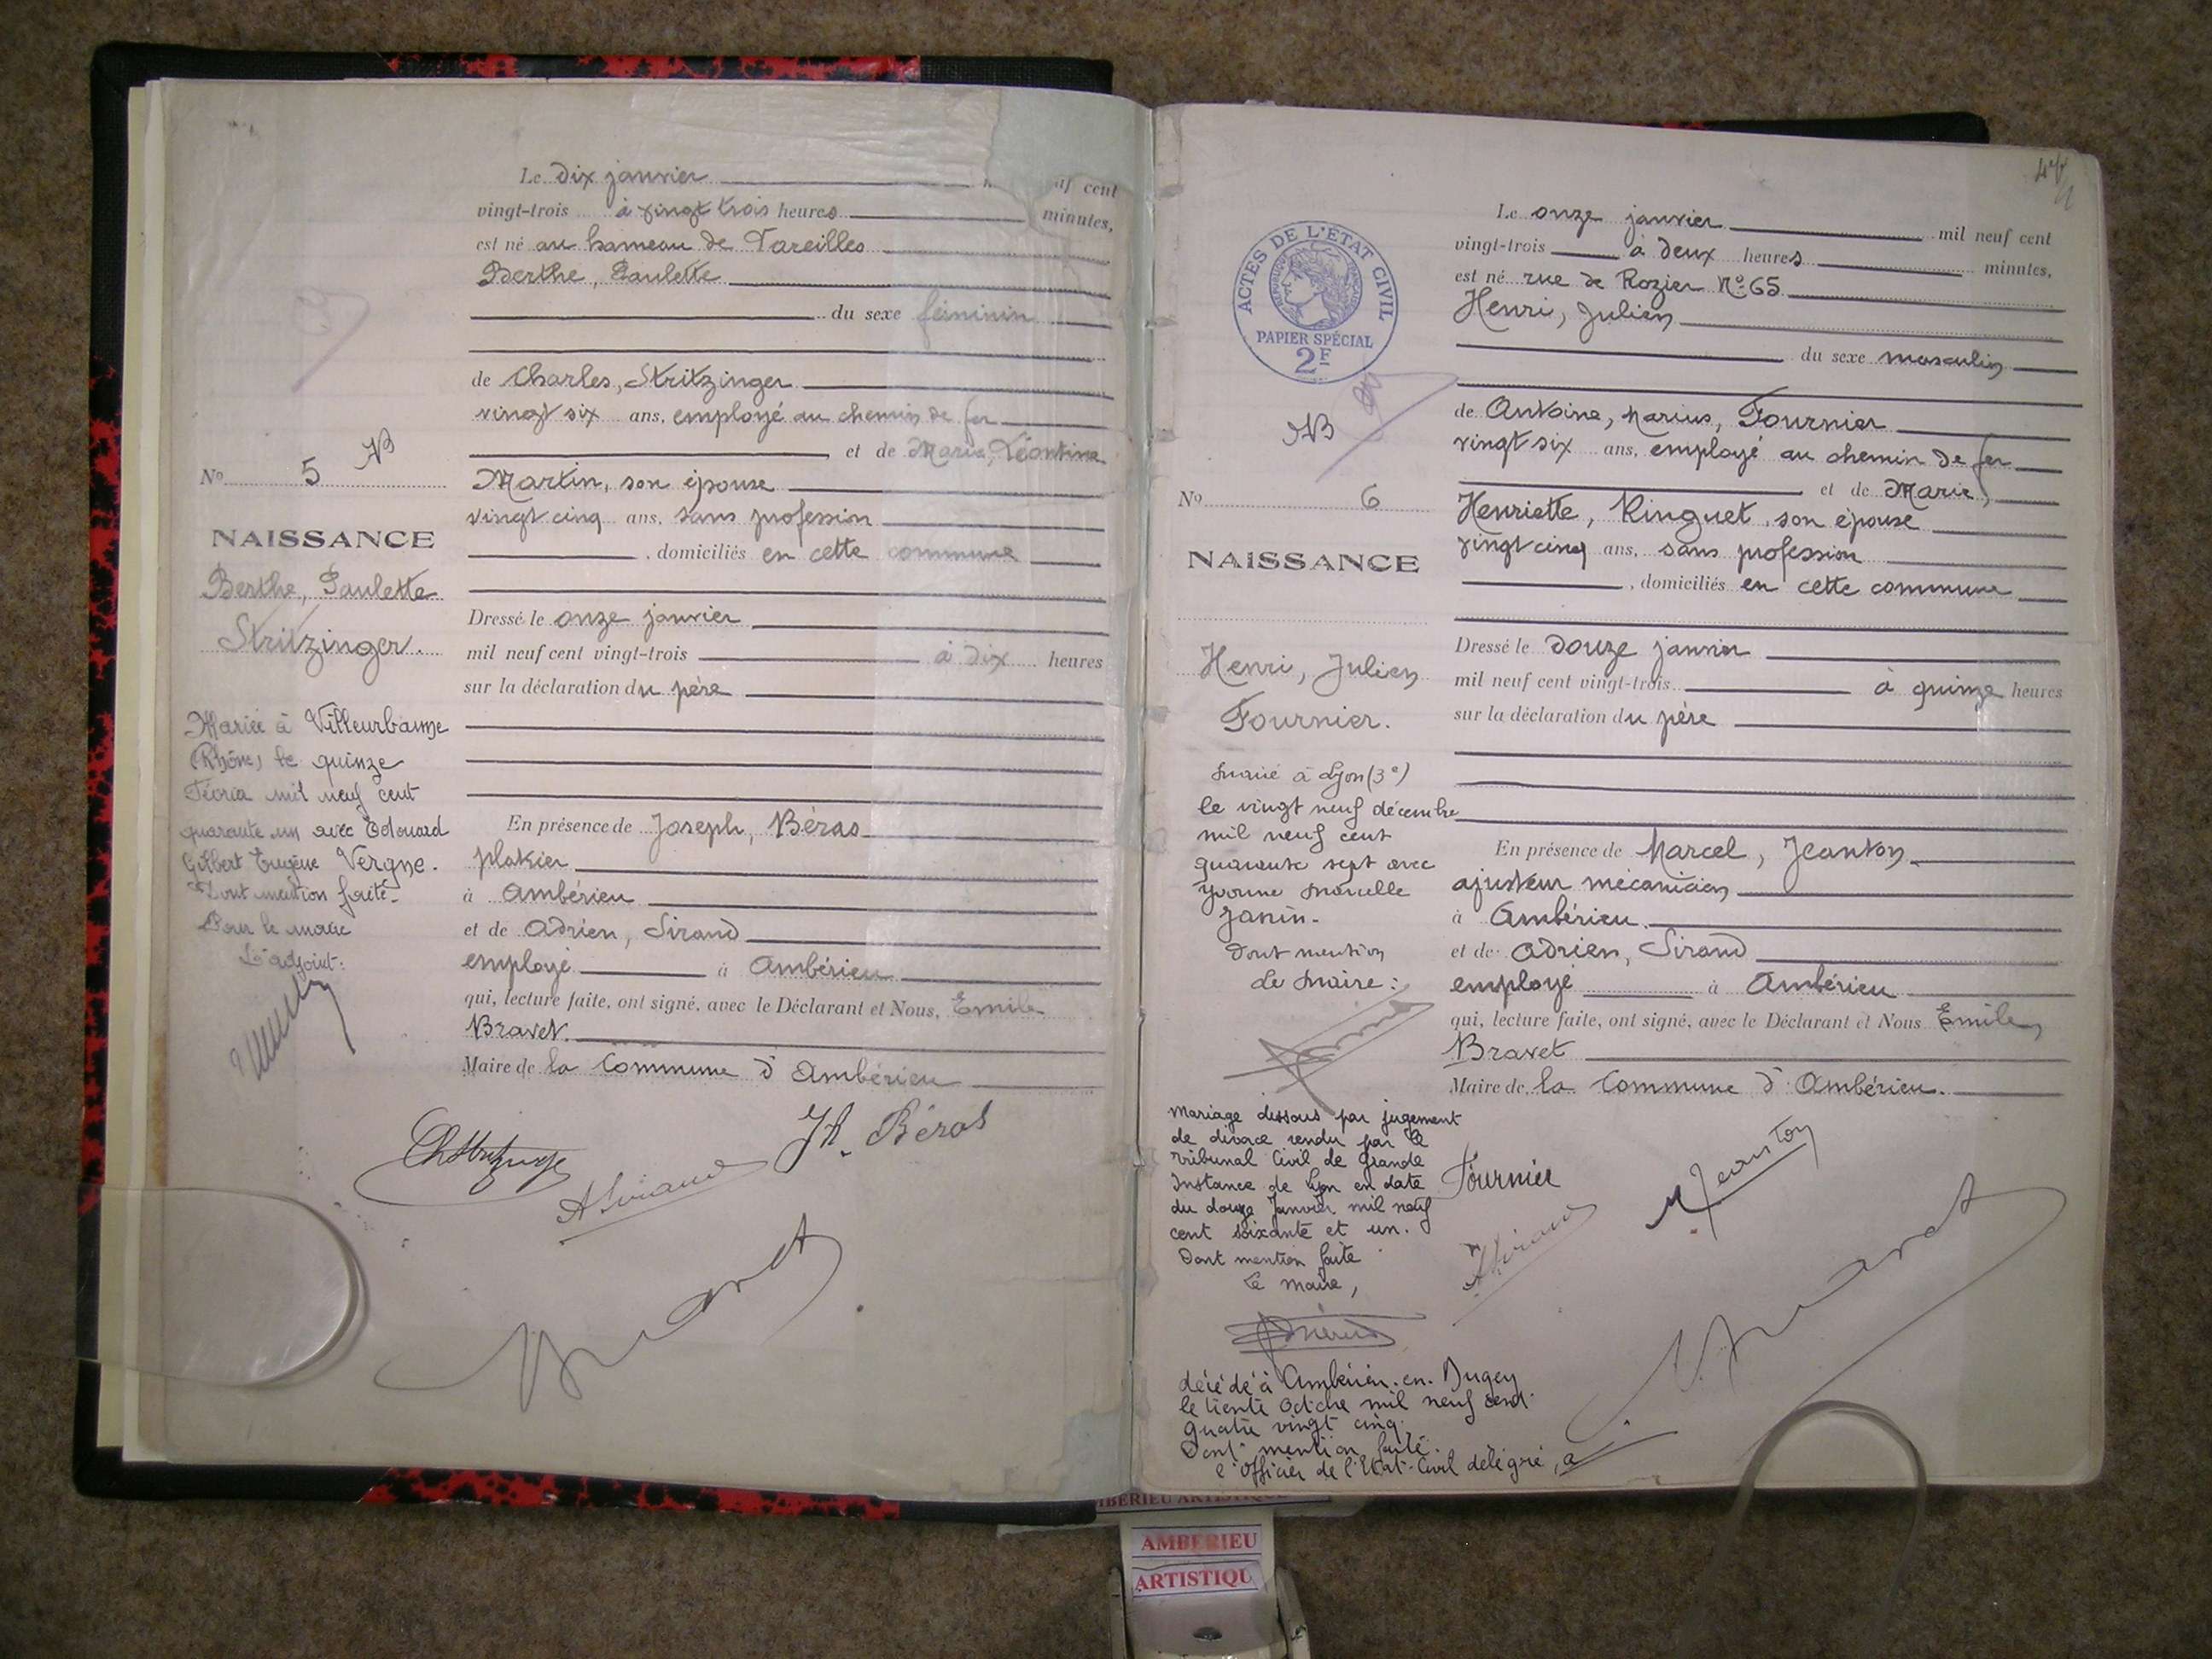 Le dix janvier
cent
vingt-trois à vingt trois heures minutes,
est né au hameau de Vareilles
Berthe, Paulette
du sexe féminin
de Charles, Stritzinger
vingt six ans, employé au chemin de fer
et de Marie, Léontine
Martin, son épouse
vingt cinq ans, sans profession
, domiciliés en cette commune
Dressé le onze janvier
mil neuf cent vingt-trois à dix heures
sur la déclaration du père
En présence de Joseph, Béras
platrier
à Ambérieu
et de Adrien, Sirand
employé à Ambérieu
qui, lecture faite, ont signé, avec le Déclarant et Nous, Emile
Bravet.
Maire de la Commune d'Ambérieu
Jh. Béras
ASirand
Bravet
No 5
NAISSANCE
Berthe, Paulette
Stritzinger.
Mariée à Villeurbanne
(Rhône) le quinze
mil neuf cent
quarante un avec Edouard
Gilbert Eugène Vergne.
Dont mention faite
Pour le maire
L'adjoint:
ACTES DE L'ÉTAT CIVIL
RÉPUBLIQUE FRANÇAISE
PAPIER SPÉCIAL
2F
No 6
NAISSANCE
Henri, Julien
Fournier.
Marié à Lyon (3e)
le vingt neuf décembre
mil neuf cent
quarante sept avec
Yvonne Marcelle
Janin.
Dont mention
Le Maire:
Mariage dissous par jugement
de divorce rendu par le
Tribunal Civil de Grande
Instance de Lyon en date
du douze Janvier mil neuf
cent soixante et un.
Dont mention faite
Le Maire,
décédé à Ambérieu-en-Bugey
le trente Octobre mil neuf cent
quatre vingt cinq.
Dont mention faite.
l'Officier de l'Etat-Civil délégué,
Le onze janvier mil neuf cent
vingt-trois à deux heures minutes,
est né rue de Rozier No 65
Henri, Julien
du sexe masculin
de Antoine, Marius, Fournier
vingt six ans, employé au chemin de fer
et de Marie,
Henriette, Ringuet, son épouse
vingt cinq ans, sans profession
, domiciliés en cette commune
Dressé le douze janvier
mil neuf cent vingt-trois à quinze heures
sur la déclaration du père
En présence de Marcel, Jeanton
ajusteur mécanicien
à Ambérieu.
et de Adrien, Sirand
employé à Ambérieu
qui, lecture faite, ont signé, avec le Déclarant et Nous Emile
Bravet
Maire de la Commune d'Ambérieu.
Fournier
M Jeanton
ASirand
Bravet
AMBERIEU ARTISTIQUE
AMBERIEU
ARTISTIQU